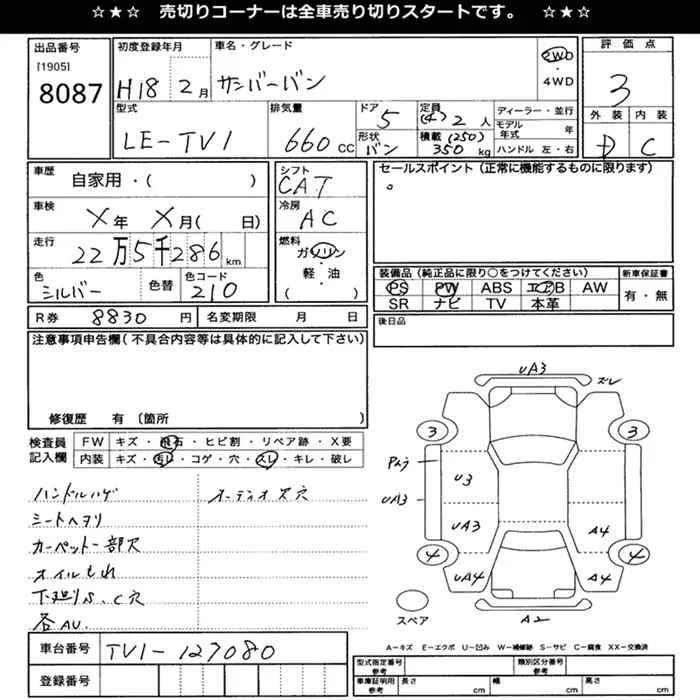 ☆★☆ 売切りコーナーは全車売り切りスタートです。 ☆★☆
出品番号 初度登録年月 車名・グレード 評価点
[1905] 8087 H18 2月 サンバーバン 2WD ・ 4WD 3
型式 排気量 ドア 定員 ディーラー・並行 外装 内装
LE-TV1 660cc 5 (4)2人 モデル年式 年 D C
形状 積載
バン (250) 350kg ハンドル 左・右
車歴 自家用・( ) シフト CAT セールスポイント(正常に機能するものに限ります)
車検 X年 X月( 日) 冷房 AC
走行 22万5千286km 燃料 ガソリン・軽・油 ( )
色 シルバー 色替 色コード 210
装備品(純正品に限り○をつけてください) 新車保証書
PS PW ABS エアB AW 有・無
SR ナビ TV 本革
R券 8830円 名変期限 月 日 後日品
注意事項申告欄(不具合内容等は具体的に記入して下さい)
修復歴 有〔箇所 〕
検査員記入欄 FW キズ・飛石・ヒビ割・リペア跡・X要
内装 キズ・汚レ・コゲ・穴・スレ・キレ・破レ
ハンドルハゲ オーディオス穴
シートヘタリ
カーペット一部欠
オイルもれ
下廻りS、C穴
各AU.
UA3
ズレ
3 3
U3
UA3
UA3 A4
4 4
UA4 A4
スペア A2
車台番号 TV1-127080
登録番号
A-キズ E-エクボ U-凹み W-補修跡 S-サビ C-腐食 XX-交換済
型式指定番号 参考 類別区分番号 参考
車庫証明用 参考 長さ cm 幅 cm 高さ cm